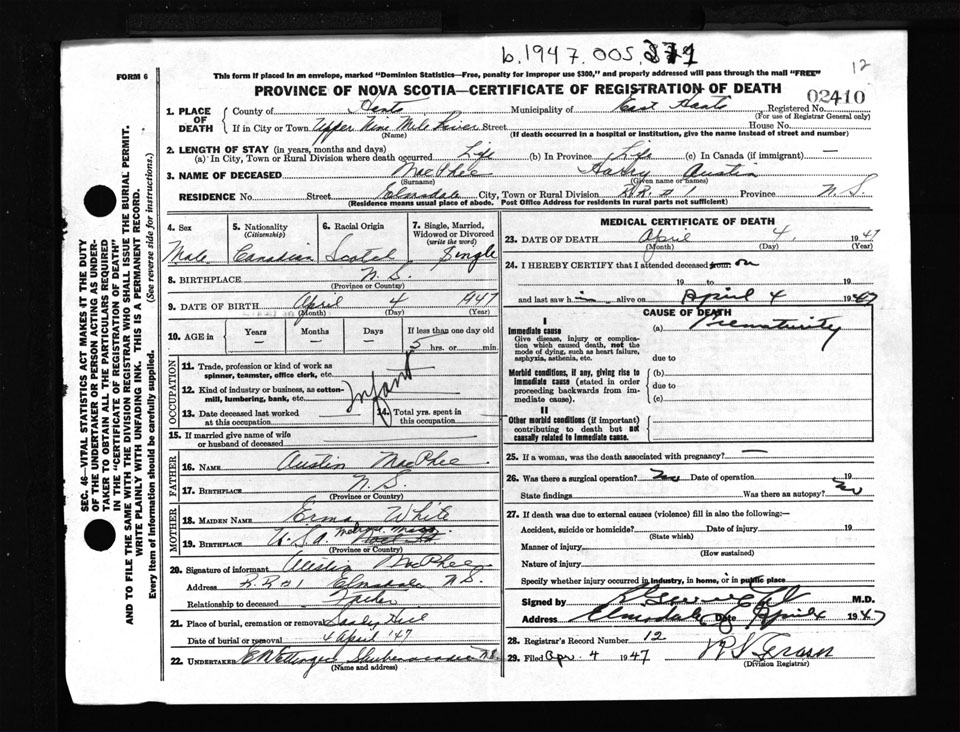 b.1947.005.
12
FORM 6
This form if placed in an envelope, marked "Dominion Statistics—Free, penalty for improper use $300," and properly addressed will pass through the mail "FREE"
PROVINCE OF NOVA SCOTIA—CERTIFICATE OF REGISTRATION OF DEATH
02410
1. PLACE OF DEATH
County of Hants Municipality of East Hants Registered No.
(For use of Registrar General only)
If in City or Town Upper Nine Mile River Street House No.
(Name) (If death occurred in a hospital or institution, give the name instead of street and number)
2. LENGTH OF STAY (in years, months and days)
(a) In City, Town or Rural Division where death occurred Life (b) In Province Life (c) In Canada (if immigrant) —
3. NAME OF DECEASED MacPhee Austin
(Surname) (Given name or names)
RESIDENCE No. Street Elmsdale City, Town or Rural Division R.R. # 1 Province N.S.
(Residence means usual place of abode. Post Office Address for residents in rural parts not sufficient)
4. Sex 5. Nationality (Citizenship) 6. Racial Origin 7. Single, Married, Widowed or Divorced (write the word)
Male Canadian Scotch Single
8. BIRTHPLACE N.S.
(Province or Country)
9. DATE OF BIRTH April 4 1947
(Month) (Day) (Year)
10. AGE in Years Months Days If less than one day old
— — — 5 hrs. or min.
OCCUPATION
11. Trade, profession or kind of work as spinner, teamster, office clerk, etc.
12. Kind of industry or business, as cotton-mill, lumbering, bank, etc.
Infant
13. Date deceased last worked at this occupation
14. Total yrs. spent in this occupation
15. If married give name of wife or husband of deceased
FATHER
16. NAME Austin MacPhee
17. BIRTHPLACE N.S.
(Province or Country)
MOTHER
18. MAIDEN NAME Erma White
19. BIRTHPLACE U.S.A. Mass.
(Province or Country)
20. Signature of informant Austin MacPhee
Address R.R #1 Elmsdale N.S.
Relationship to deceased Father
21. Place of burial, cremation or removal
Date of burial or removal 4 April '47
22. UNDERTAKER Shubenacadie N.S.
(Name and address)
MEDICAL CERTIFICATE OF DEATH
23. DATE OF DEATH April 4, 1947
(Month) (Day) (Year)
24. I HEREBY CERTIFY that I attended deceased from: on
19 to 19
and last saw him alive on April 4 1947
CAUSE OF DEATH
I
Immediate cause
Give disease, injury or complication which caused death, not the mode of dying, such as heart failure, asphyxia, asthenia, etc.
(a) Prematurity
due to
Morbid conditions, if any, giving rise to immediate cause (stated in order proceeding backwards from immediate cause).
(b)
due to
(c)
II
Other morbid conditions (if important) contributing to death but not causally related to immediate cause.
25. If a woman, was the death associated with pregnancy? —
26. Was there a surgical operation? No Date of operation 19
State findings Was there an autopsy? No
27. If death was due to external causes (violence) fill in also the following:—
Accident, suicide or homicide? Date of injury 19
(State which)
Manner of injury
(How sustained)
Nature of injury
Specify whether injury occurred in industry, in home, or in public place
Signed by M.D.
Address Elmsdale Date April 4 1947
28. Registrar's Record Number 12
29. Filed Apr. 4 1947
(Division Registrar)
SEC. 46—VITAL STATISTICS ACT MAKES IT THE DUTY
OF THE UNDERTAKER OR PERSON ACTING AS UNDER-
TAKER TO OBTAIN ALL THE PARTICULARS REQUIRED
IN THE "CERTIFICATE OF REGISTRATION OF DEATH"
AND TO FILE THE SAME WITH THE DIVISION REGISTRAR WHO SHALL ISSUE THE BURIAL PERMIT.
WRITE PLAINLY WITH UNFADING INK. THIS IS A PERMANENT RECORD.
Every item of information should be carefully supplied. (See reverse side for instructions.)